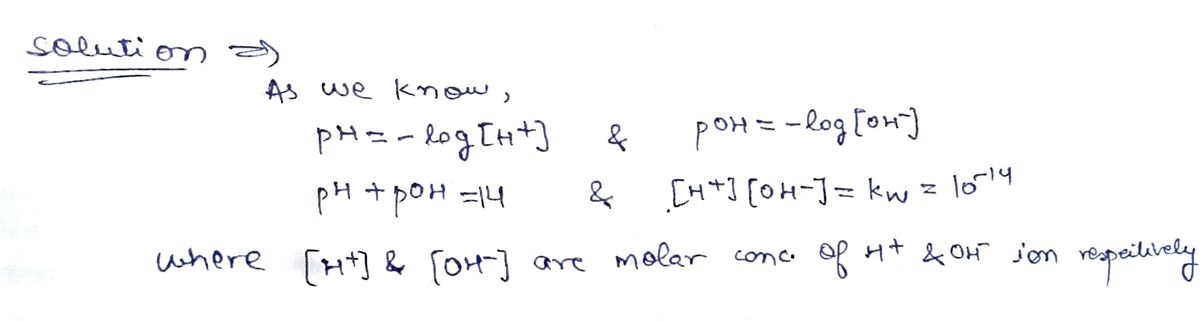 solution ⇒
As we know,
pH = - log [H+] & pOH = - log [OH-]
pH + pOH = 14 & [H+] [OH-] = kw = 10^-14
where [H+] & [OH-] are molar conc. of H+ & OH- ion respectively